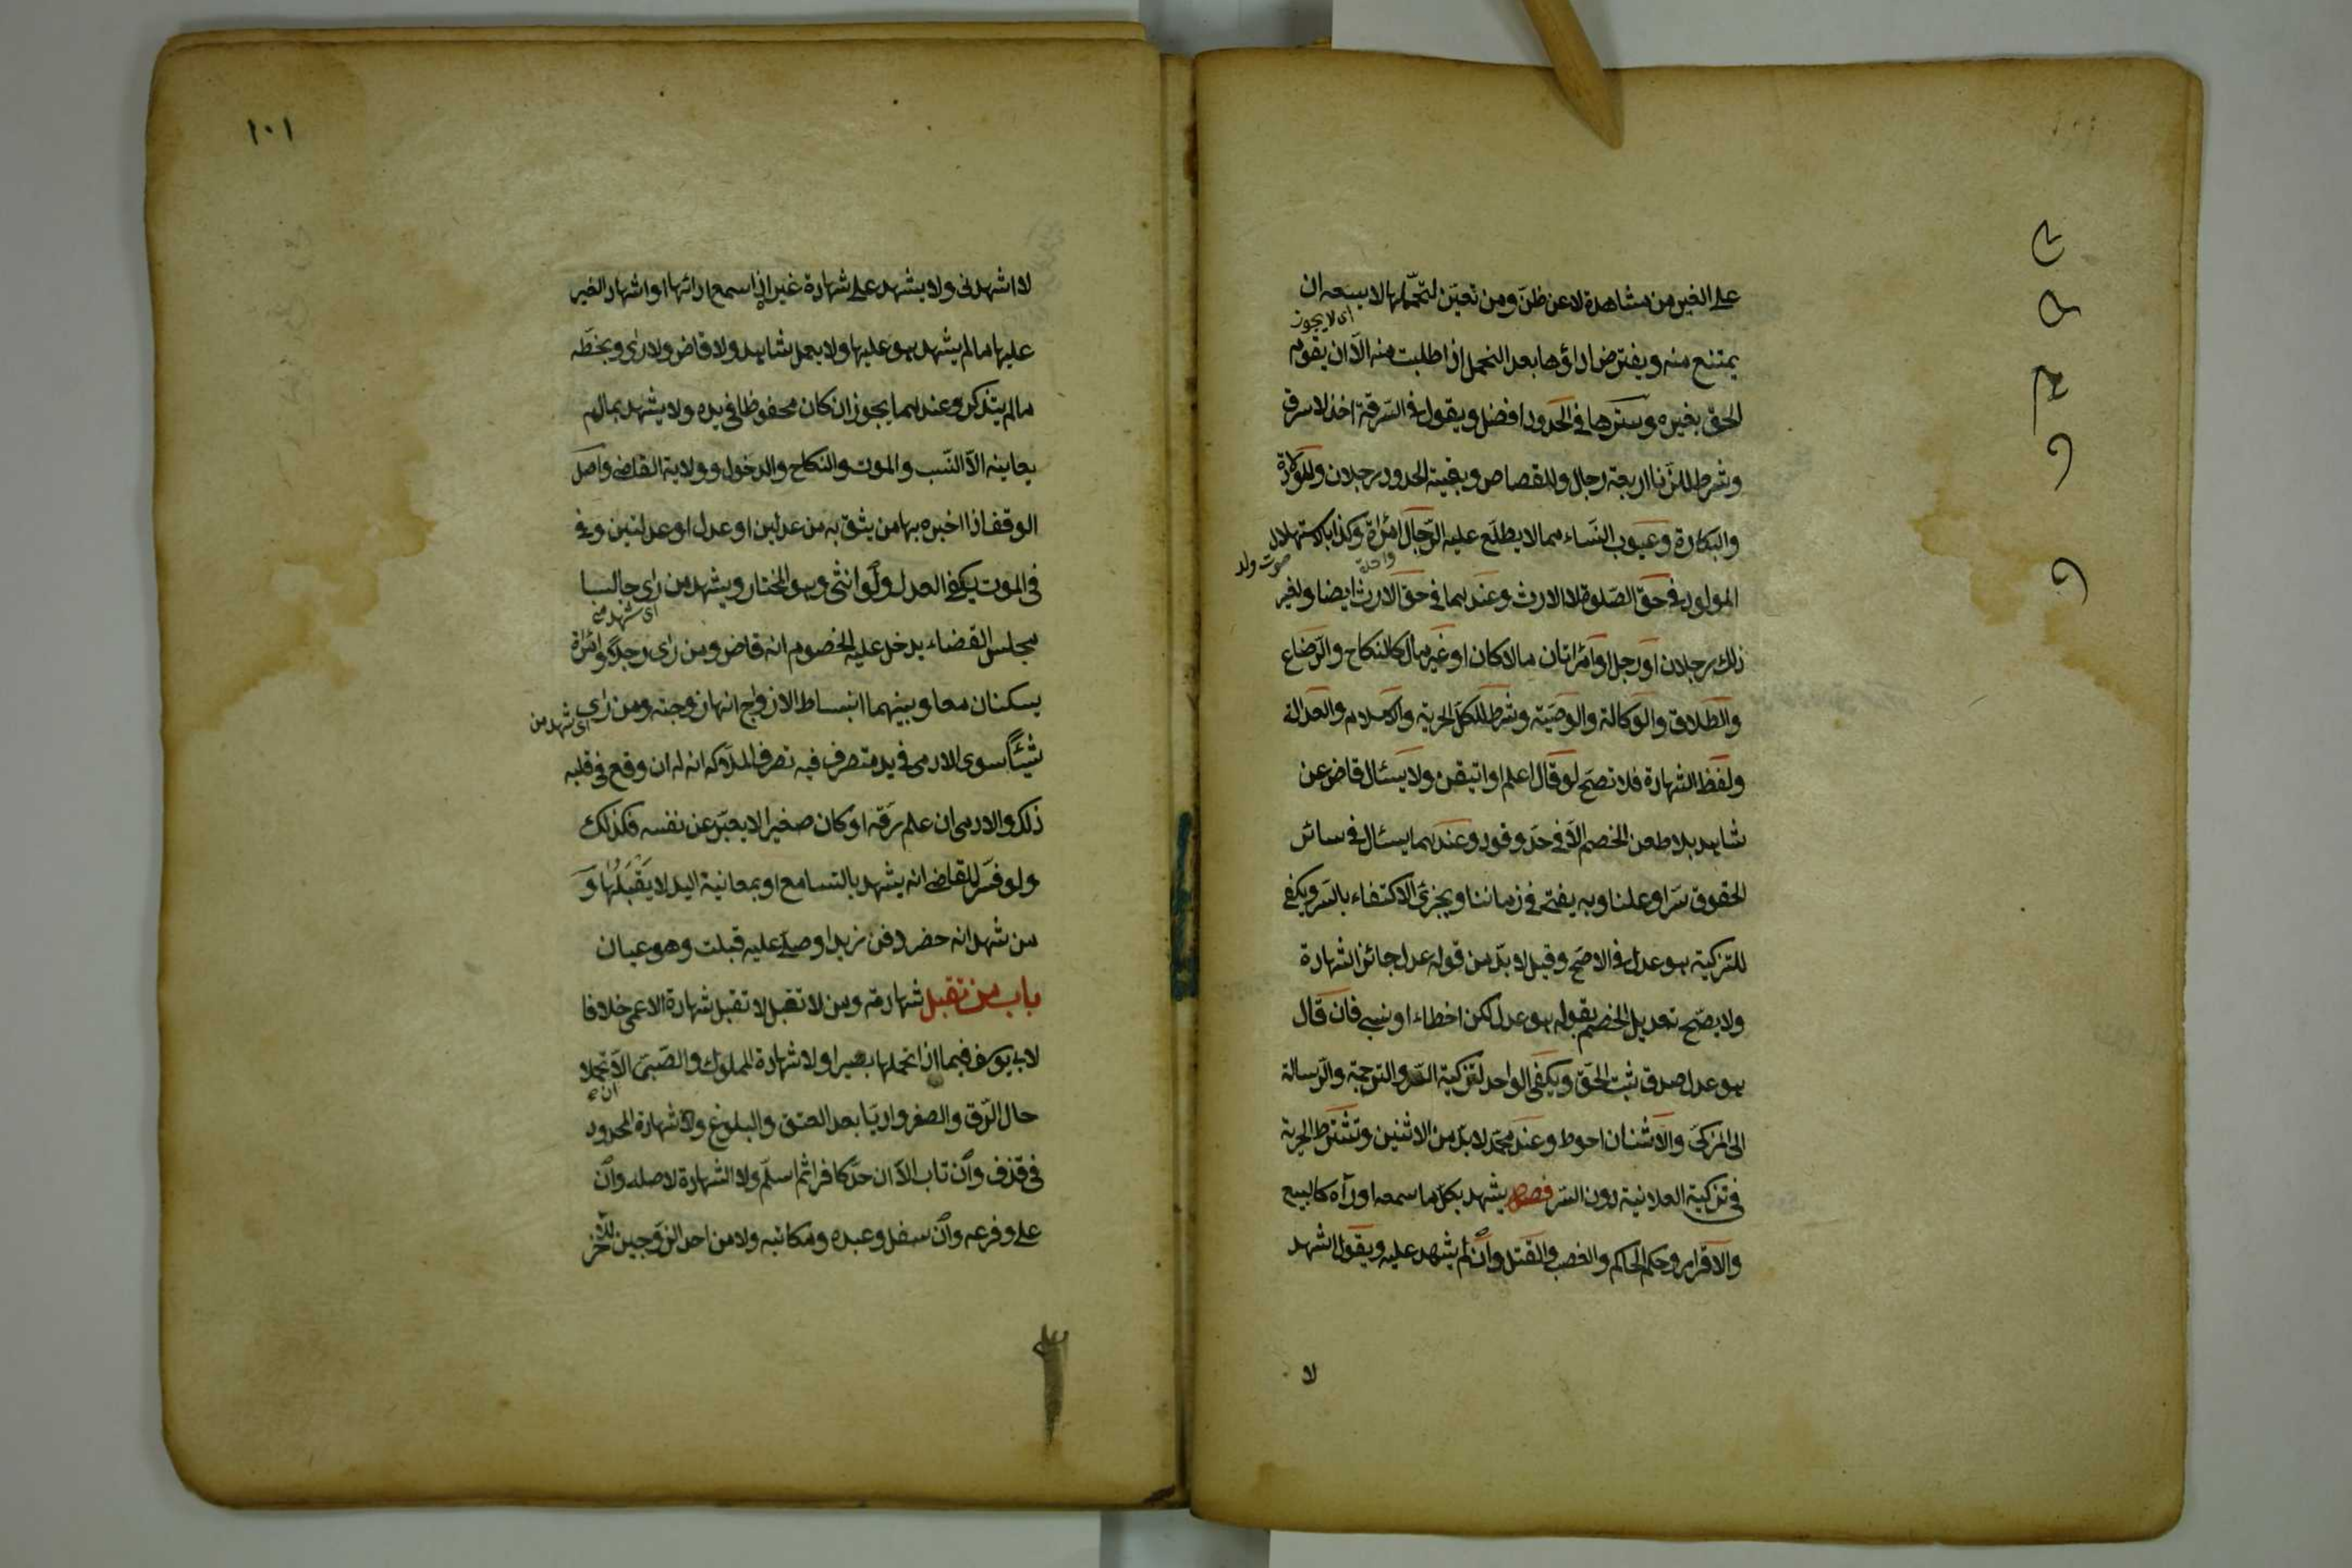 على الغير من مشاهدة لا عن ظن ومن تعين لتحملها لا يسعه ان
اى لا يجوز
يمتنع منه ويفترض اداؤها بعد التحمل اذا طلبت منه الا ان يقوم
الحق بغيره وسترها في الحدود افضل ويقول في السرقة اخذ لا سرق
وشرط للزنا اربعة رجال وللقصاص وبقية الحدود رجلان وللولادة
والبكارة وعيوب النساء مما لا يطلع عليه الرجال امرأة وكذا باستهلال
واحدة
صوت ولد
المولود في حق الصلوة لا الارث وعندهما في حق الارث ايضا ولغير
ذلك رجلان او رجل وامرأتان مالا كان او غير مال كالنكاح والرضاع
والطلاق والوكالة والوصية وشرط للكل الحرية والاسلام والعدالة
ولفظ الشهادة فلا تصح لو قال اعلم او اتيقن ولا يسئال قاض عن
شاهد بلا طعن الخصم الا في حد وقود وعندهما يسئال في سائر
الحقوق سرا وعلنا وبه يفتى في زماننا ويجزئ الاكتفاء بالسر ويكفى
للتزكية هو عدل في الاصح وقيل لا بد من قوله عدل جائز الشهادة
ولا يصح تعديل الخصم بقوله هو عدل لكن اخطاء او نسى فان قال
هو عدل صدق ثبت الحق ويكفى الواحد لتزكية السر والترجمة والرسالة
الى المزكى والاثنان احوط وعند محمد لا بد من الاثنين وتشترط الحرية
في تزكية العلانية دون السر فصل يشهد بكل ما سمعه او رآه كالبيع
والاقرار وحكم الحاكم والغصب والقتل وان لم يشهد عليه ويقول اشهد
لا
١٠١
لا اشهدنى ولا يشهد على شهادة غير اذا سمع ادائها او اشهاد الغير
عليها ما لم يشهد هو عليها ولا يعمل شاهد ولا قاض ولا راو بخطه
ما لم يتذكر وعندهما يجوز ان كان محفوظا في يده ولا يشهد بما لم
يعاينه الا النسب والموت والنكاح والدخول وولاية القاضى واصل
الوقف اذا اخبره بها من يثق به من عدلين او عدل او عدلتين وفي
في الموت يكفى العدل ولو انثى وهو المختار ويشهد من راى جالسا
اى شهد من
مجلس القضاء يدخل عليه الخصوم انه قاض ومن راى رجلا وامرأة
يسكنان معا وبينهما انبساط الازواج انها زوجته ومن راى
اى شهد من
شيئا سوى الادمى في يد متصرف فيه تصرف الملاك انه له ان وقع في قلبه
ذلك والادمى ان علم رقه او كان صغيرا لا يعبر عن نفسه فكذلك
ولو فسر للقاضى انه يشهد بالتسامع او بمعاينة اليد لا يقبلها و
من شهد انه حضر دفن زيد او صلى عليه قبلت وهو عيان
باب من تقبل شهادته ومن لا تقبل لا تقبل شهادة الاعمى خلافا
لابى يوسف فيما اذا تحملها بصيرا ولا شهادة المملوك والصبى الا تحملا
ان
حال الرق والصغر واديا بعد العتق والبلوغ ولا شهادة المحدود
في قذف وان تاب الا ان حد كافرا ثم اسلم ولا الشهادة لاصله وان
على وفرعه وان سفل وعبده ومكاتبه ولا من احد الزوجين للآخر